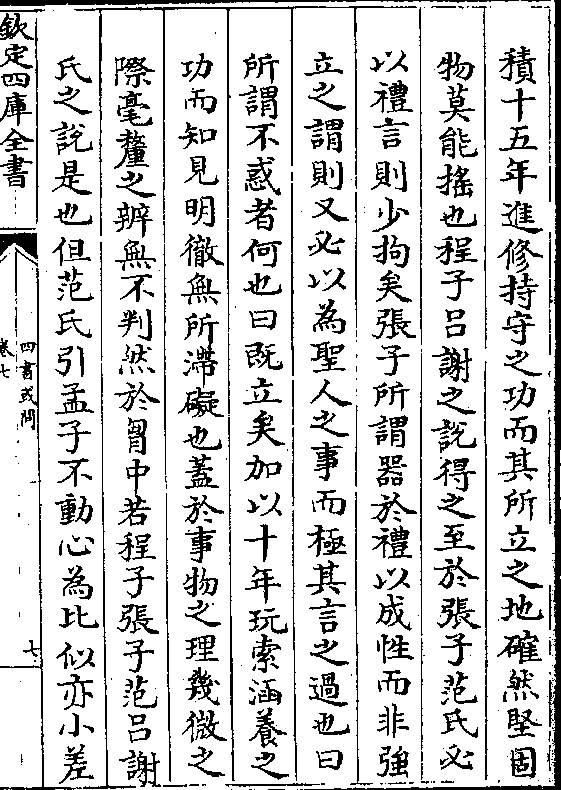 積十五年進修持守之功而其所立之地確然堅固
物莫能搖也程子呂謝之說得之至於張子范氏必
以禮言則少拘矣張子所謂器於禮以成性而非強
立之謂則又必以為聖人之事而極其言之過也曰
所謂不惑者何也曰既立矣加以十年玩索涵養之
功而知見明徹無所滯礙也蓋於事物之理幾微之
際毫釐之辨無不判然於胷中若程子張子范呂謝
氏之說是也但范氏引孟子不動心為比似亦小差
欽定四庫全書
四書或問
卷七
七